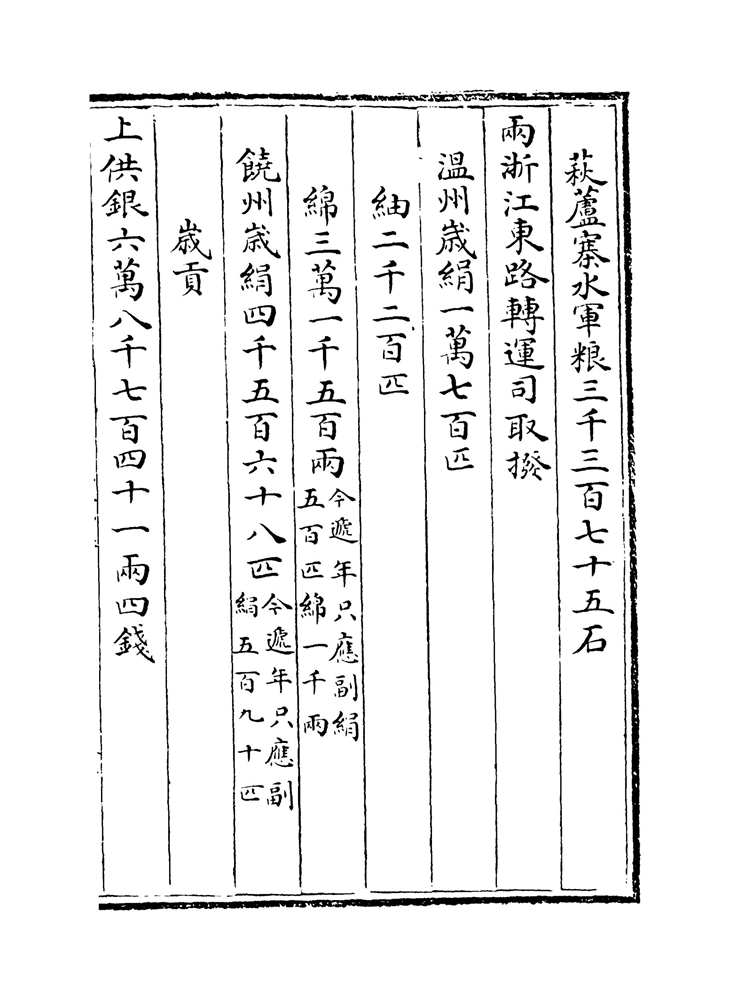 萩蘆寨水軍粮三千三百七十五石
兩浙江東路轉運司取撥
溫州歳絹一萬七百匹
紬二千二百匹
綿三萬一千五百兩今遞年只應副絹五百匹綿一千兩
饒州歳絹四千五百六十八匹今遞年只應副絹五百九十匹
歳貢
上供銀六萬八千七百四十一兩四錢